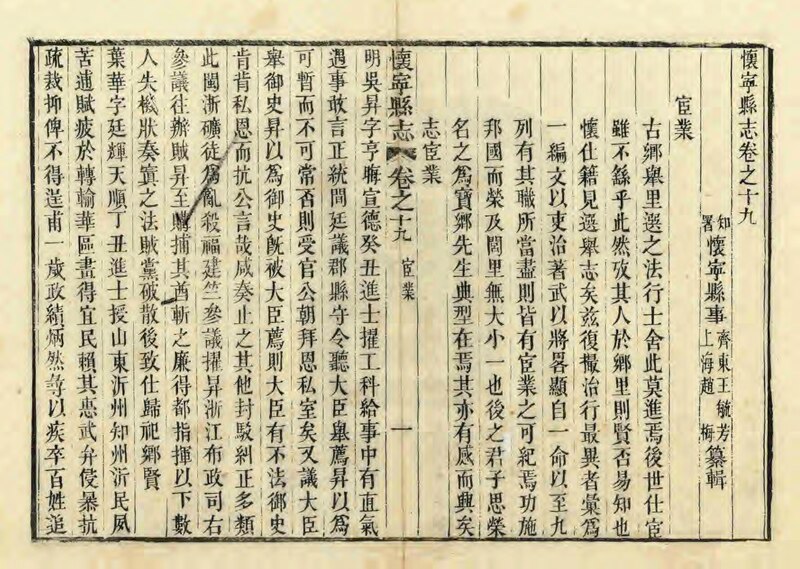 懷寧縣志卷之十九
知署懷寧縣事齊東王毓芳上海趙梅纂輯
宦業
古鄉舉里選之法行士舍此莫進焉後世仕宦
雖不繇乎此然攷其人於鄉里則賢否易知也
懷仕籍見選舉志矣兹復撮治行最異者彙為
一編文以吏治著武以將畧顯自一命以至九
列有其職所當盡則皆有宦業之可紀焉功施
邦國而榮及閭里無大小一也後之君子思榮
名之為寶鄉先生典型在焉其亦有感而興矣
志宦業
懷寧縣志 卷之十九 宦業 一
明吳昇字亨晦宣德癸丑進士擢工科給事中有直氣
遇事敢言正統間廷議郡縣守令聽大臣舉薦昇以為
可暫而不可常否則受官公朝拜恩私室矣又議大臣
舉御史昇以為御史旣被大臣薦則大臣有不法御史
肯背私恩而抗公言哉咸奏止之其他封駁糾正多類
此閩浙礦徒為亂殺福建竺參議擢昇浙江布政司右
參議往辦賊昇至購捕其酋斬之廉得都指揮以下數
人失機狀奏寘之法賊黨破散後致仕歸祀鄉賢
葉華字廷輝天順丁丑進士授山東沂州知州沂民夙
苦逋賦疲於轉輸華區畫得宜民賴其惠武弁侵暴抗
疏裁抑俾不得逞甫一歲政績炳然尋以疾卒百姓追